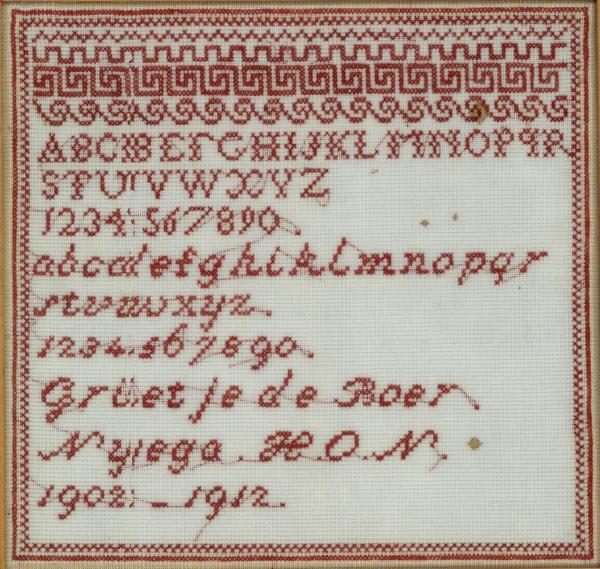 ABCDEFGHIJKLMNOPQR
STUVWXYZ
1234567890
abcdefghiklmnopqr
stuvwxyz
1234567890
Grietje de Boer
Nyega H.O.N.
1902 - 1912